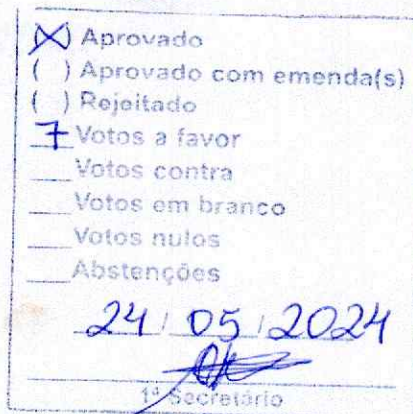 (X) Aprovado
( ) Aprovado com emenda(s)
( ) Rejeitado
7 Votos a favor
___ Votos contra
___ Votos em branco
___ Votos nulos
___ Abstenções
24 / 05 / 2024
1º Secretário